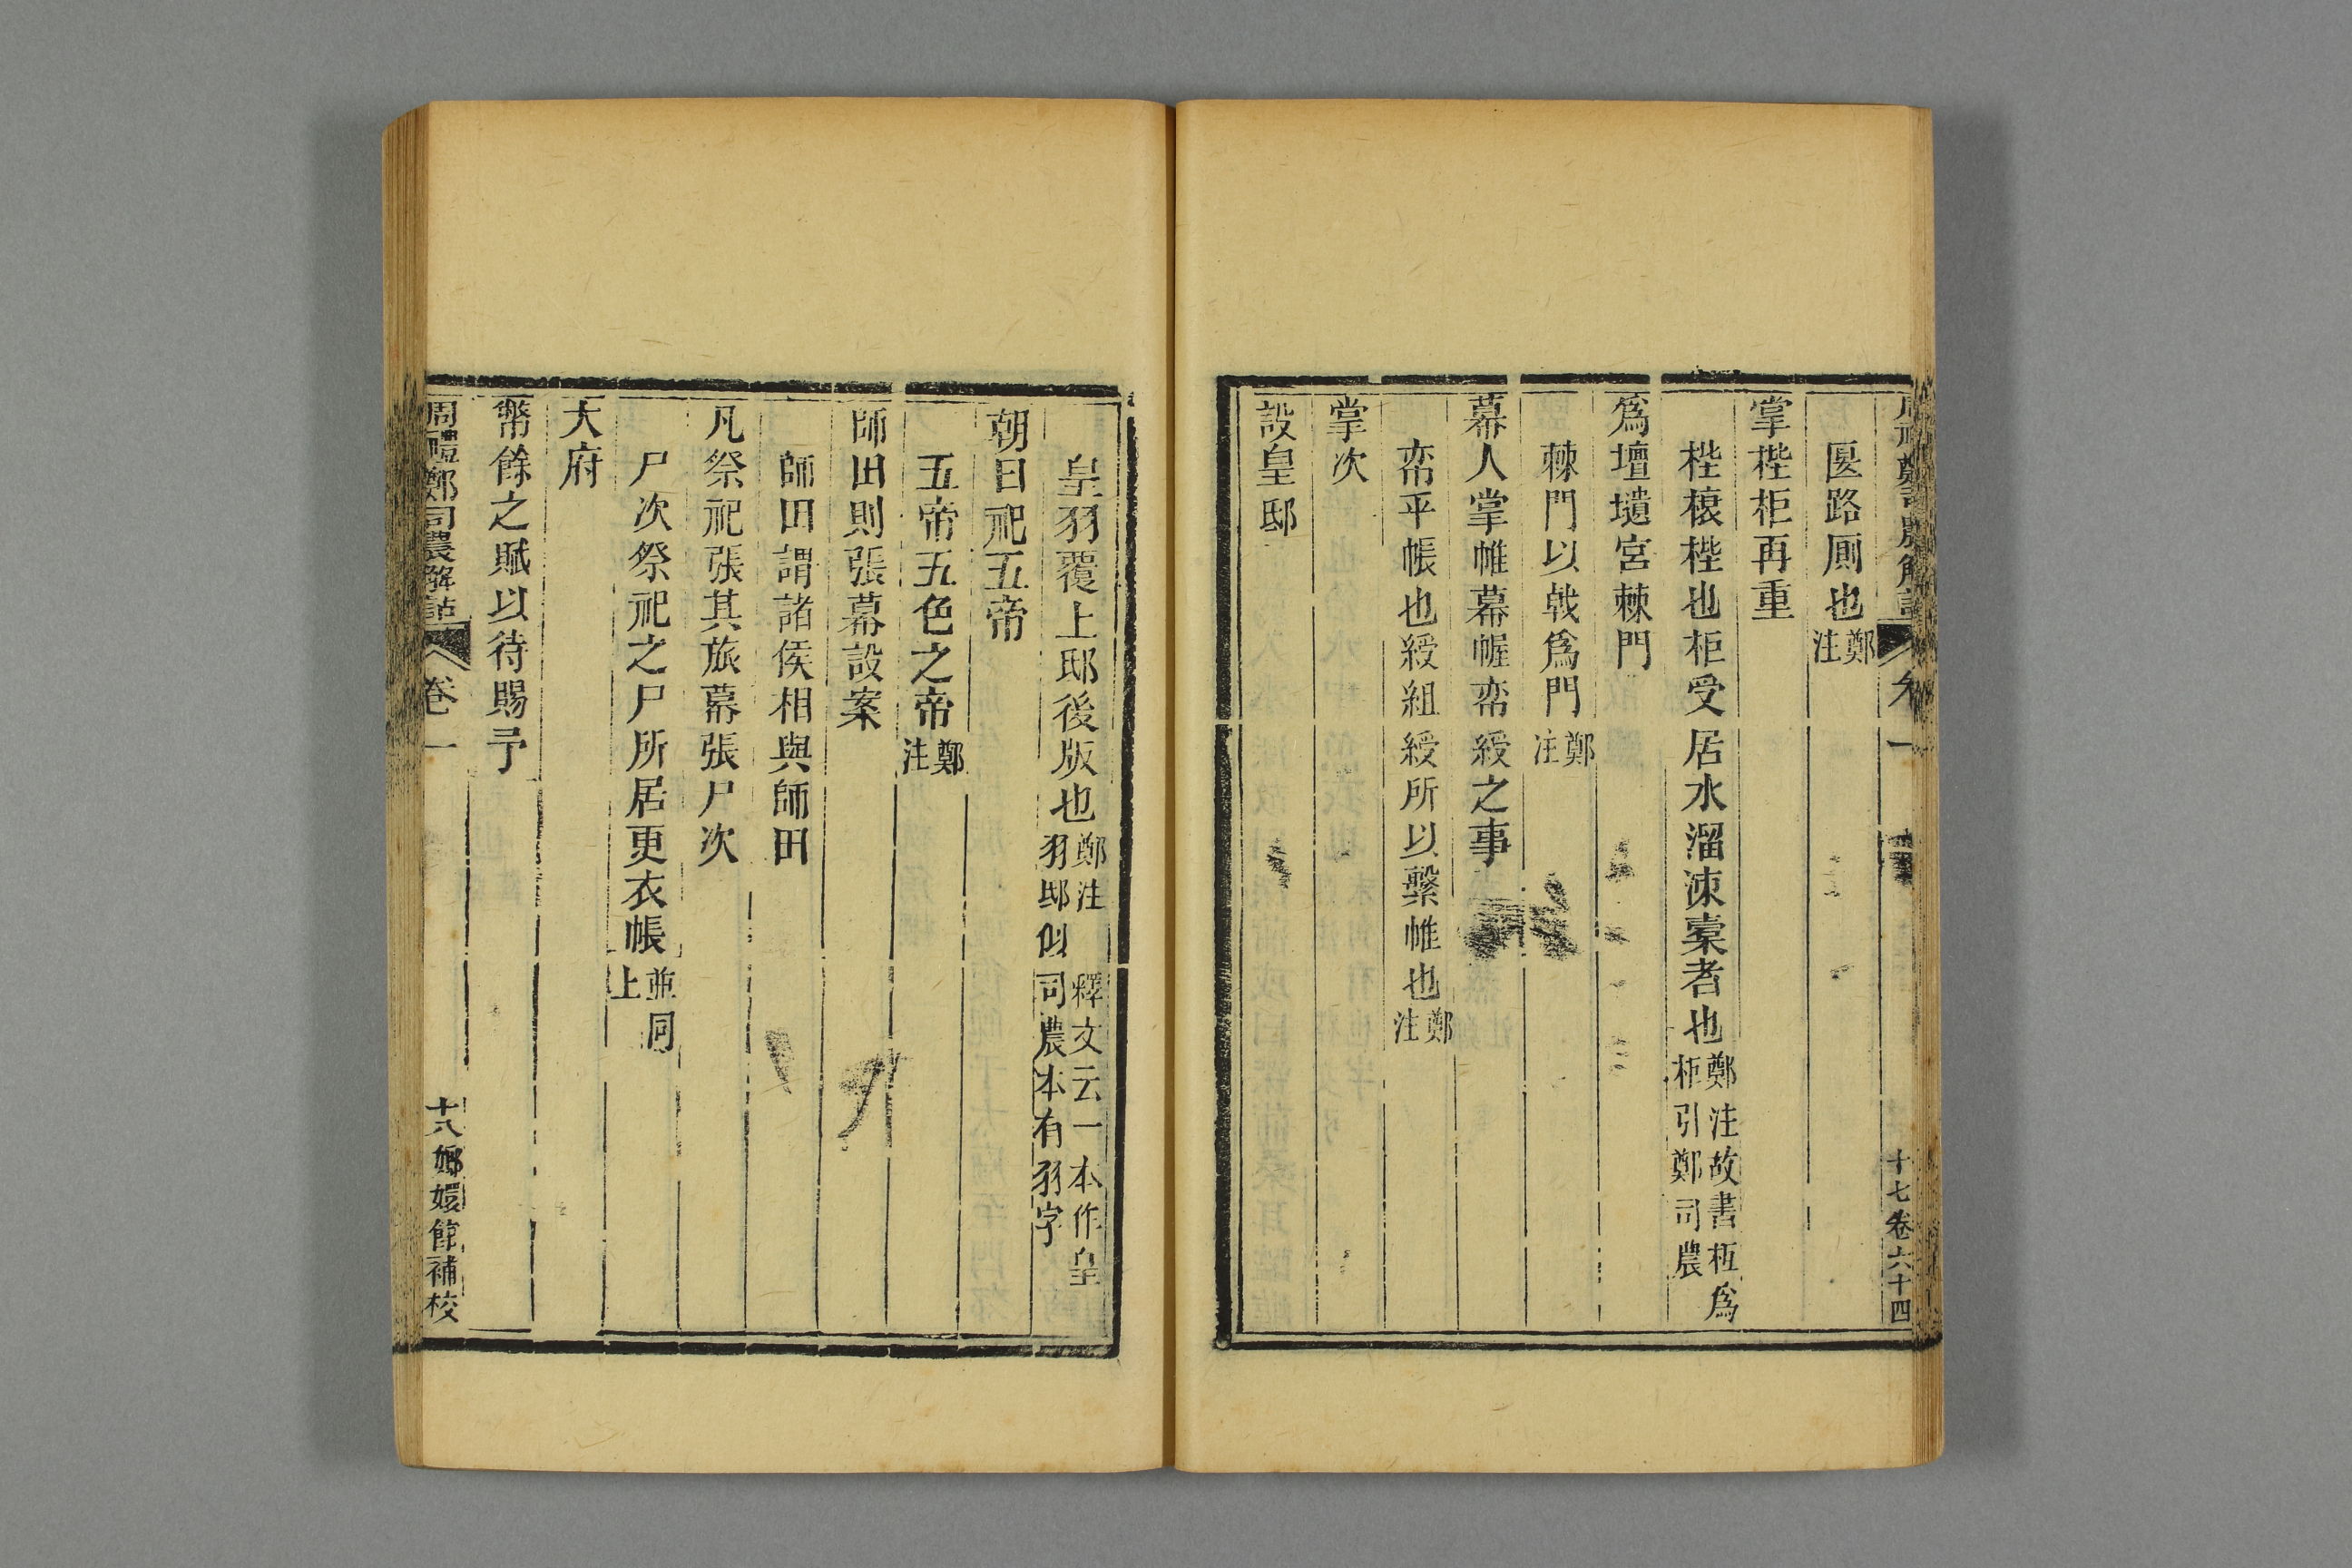 周禮鄭司農解詁 卷一 十七 卷六十四
匽路厠也鄭注
掌梐枑再重
梐榱梐也柜受居水溜涑橐者也鄭注故書枑爲柜引鄭司農
爲壇壝宮棘門
棘門以戟爲門鄭注
幕人掌帷幕幄帟綬之事
帟平帳也綬組綬所以繫帷也鄭注
掌次
設皇邸
皇羽覆上邸後版也鄭注 釋文云一本作皇羽邸似司農本有羽字
朝日祀五帝
五帝五色之帝鄭注
師田則張幕設案
師田謂諸侯相與師田
凡祭祀張其旅幕張尸次
尸次祭祀之尸所居更衣帳並同上
大府
幣餘之賦以待賜予
周禮鄭司農解詁 卷一 十八 嫏嬛館補校